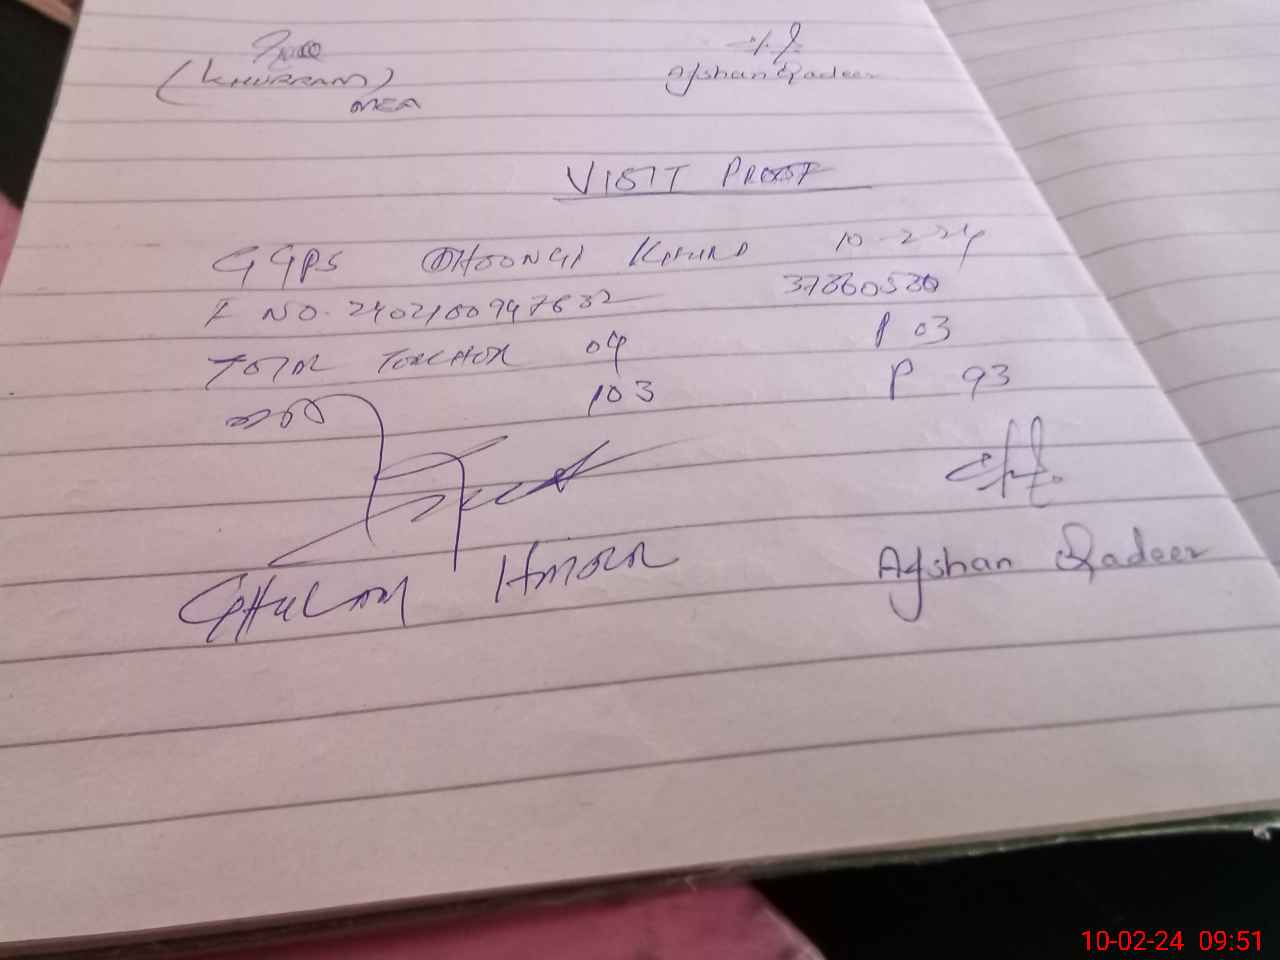 (KHURRAM)
MEA
Afshan Qadeer
VISIT PROOF
GGPS DHOONGI KHURD 10-2-24
F NO. 2402100947632 37360530
TOTAL TEACHER 04 P 03
103 P 93
GHULAM
Afshan Qadeer
10-02-24 09:51